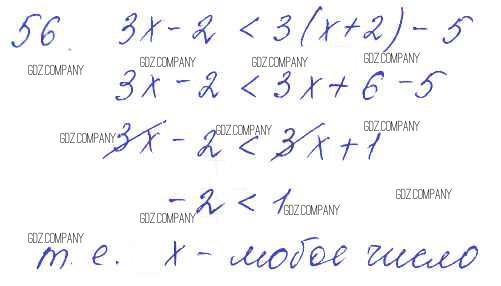 56. 3x - 2 < 3(x+2) - 5
GDZ.COMPANY GDZ.COMPANY GDZ.COMPANY
3x - 2 < 3x + 6 - 5
GDZ.COMPANY GDZ.COMPANY GDZ.COMPANY
3x - 2 < 3x + 1
-2 < 1
GDZ.COMPANY GDZ.COMPANY GDZ.COMPANY
GDZ.COMPANY
т. е. x - любое число